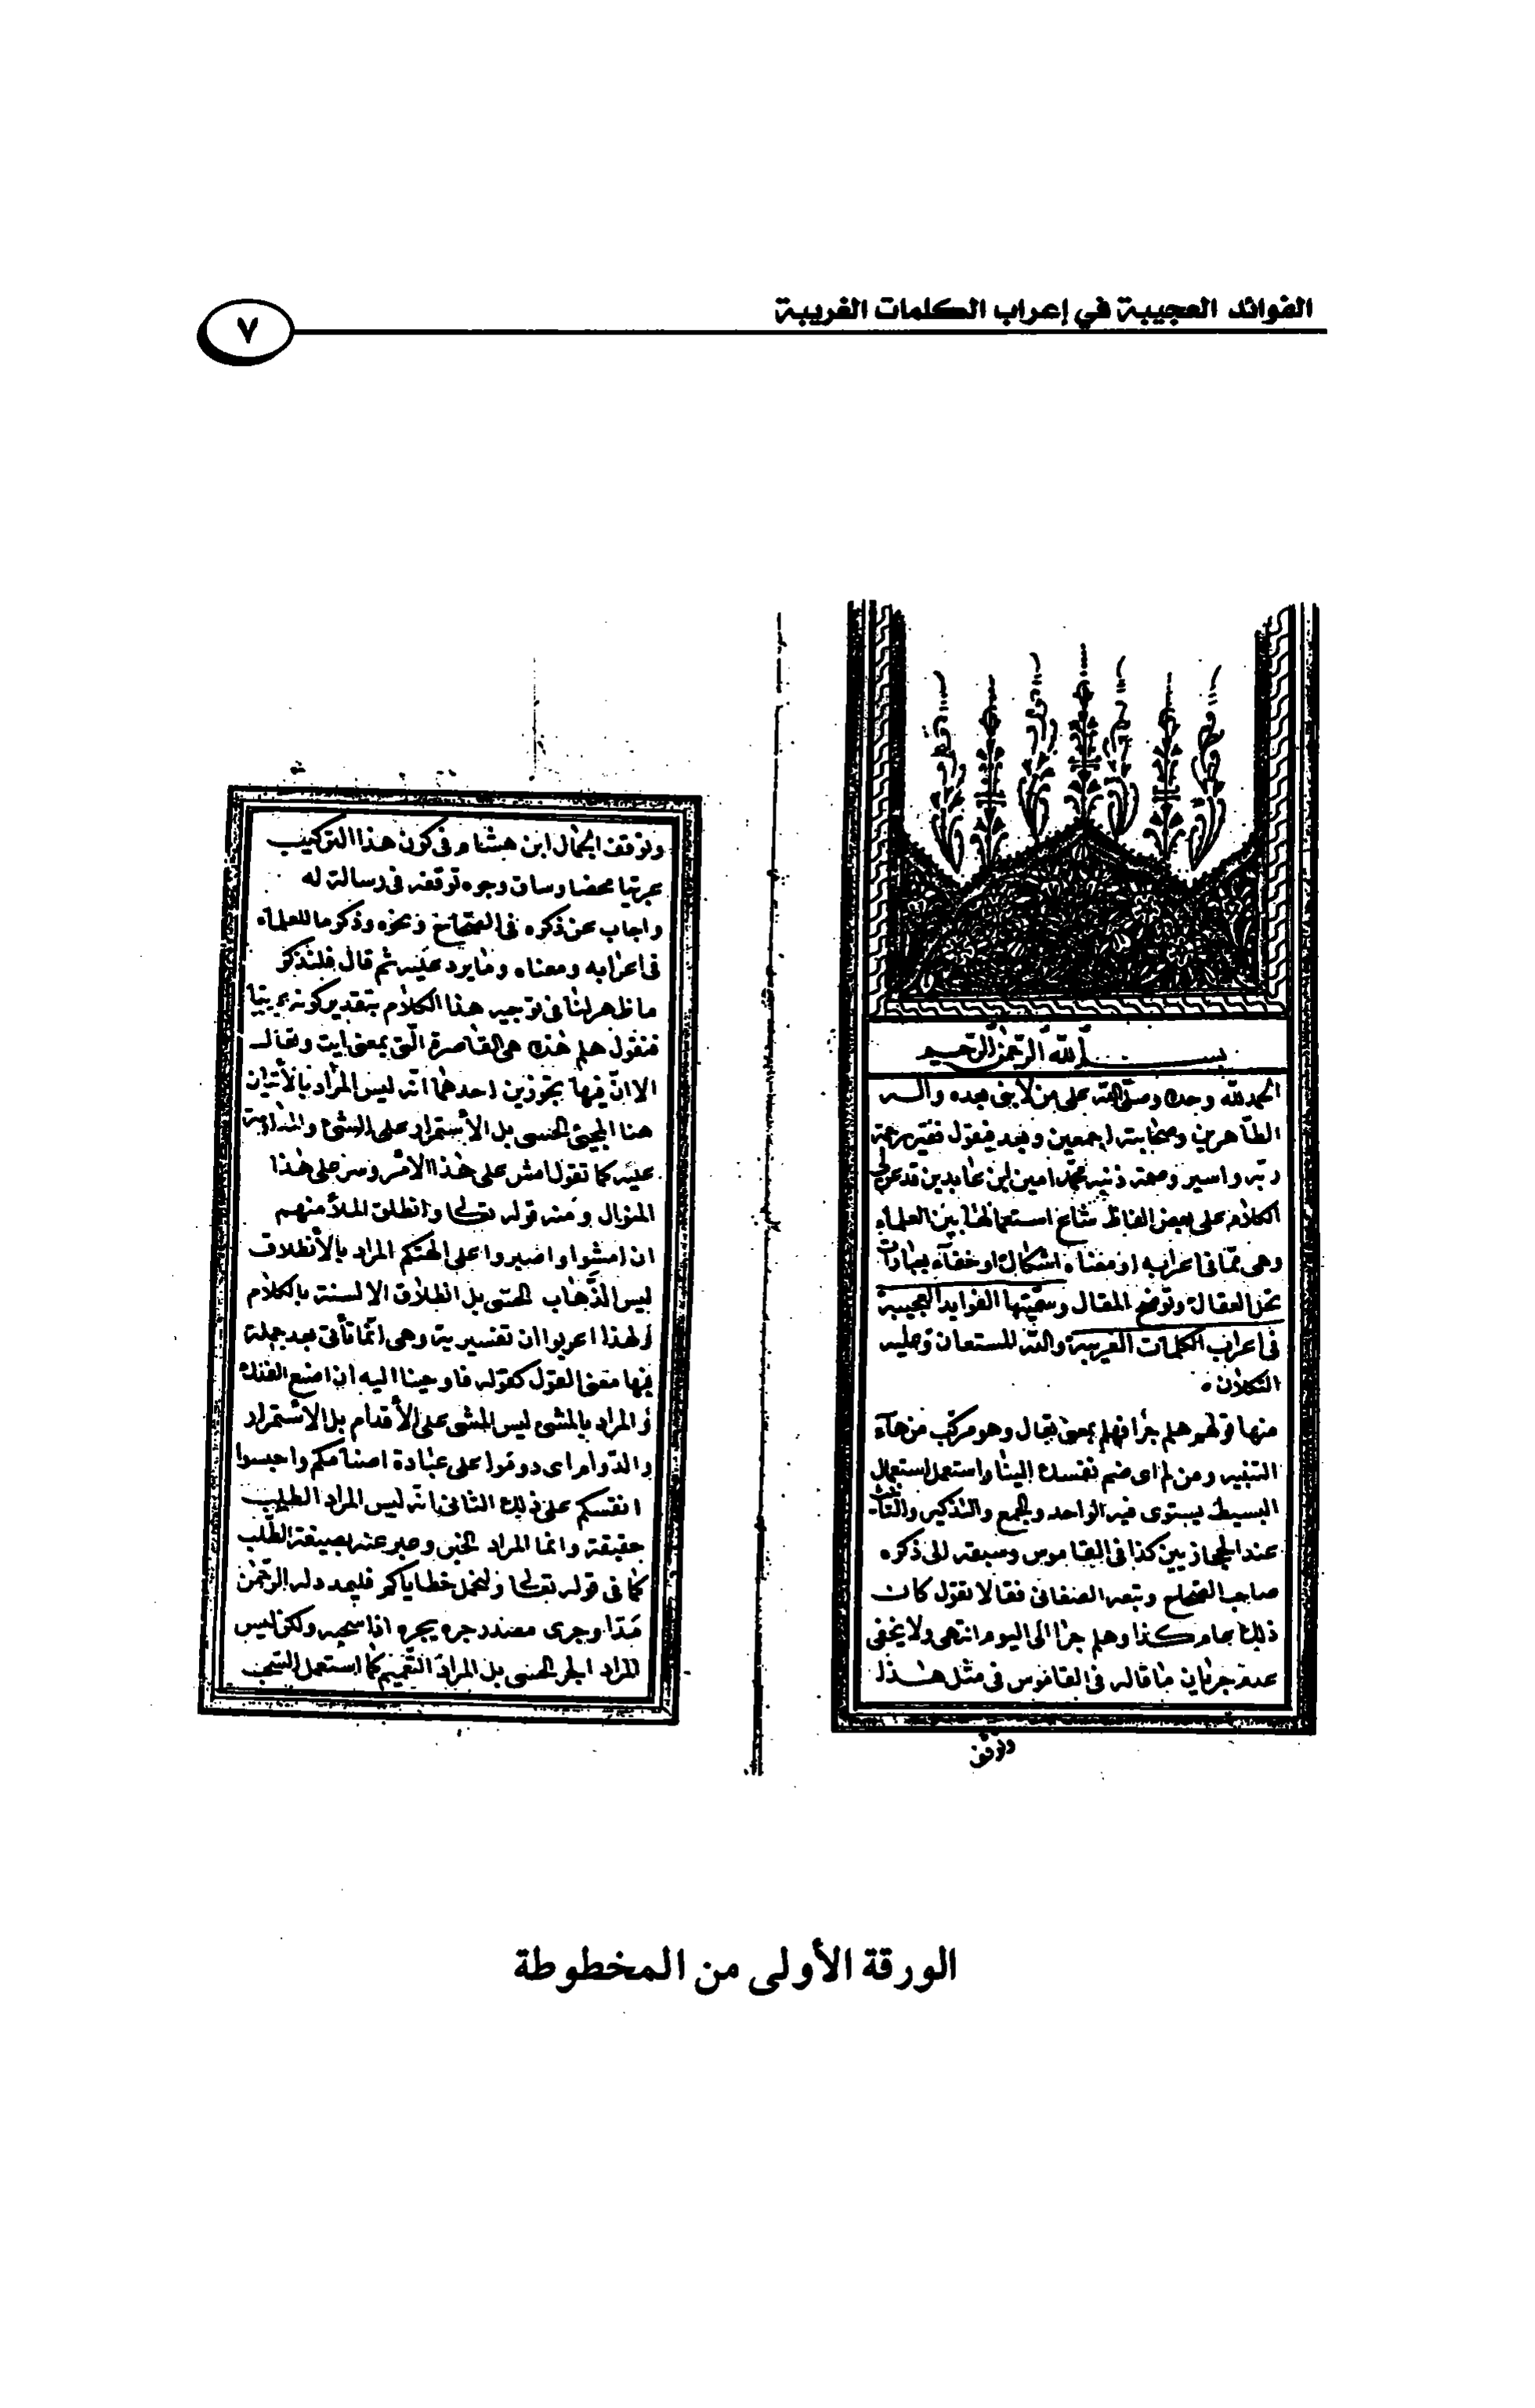 الفوائد العجيبة في إعراب الكلمات الغريبة
٧
بسم الله الرحمن الرحيم
الحمد لله وحده وصلى الله على من لا نبى بعده واله
الطاهرين وصحابته اجمعين وبعد فيقول فقير رحمة
ربه واسير وصمة ذنبه محمد امين ابن عابدين قد عن لى
الكلام على بعض الفاظ شاع استعمالها بين العلماء
وهى مما فى اعرابه او معناه اشكال او خفاء بعبارات
تحل العقال وتوضح المقال وسميتها الفوايد العجيبة
فى اعراب الكلمات الغريبة والله المستعان وعليه
التكلان
منها قولهم هلم جرا فهلم بمعنى تعال وهو مركب من هاء
التنبيه ومن لم اى ضم نفسك الينا واستعمل استعمال
البسيط يستوى فيه الواحد والجمع والتذكير والتأنيث
عند الحجازيين كذا فى القاموس وسبقه الى ذكره
صاحب الصحاح وتبعه الصغانى فقالا تقول كان
ذلك عام كذا وهلم جرا الى اليوم انتهى ولا يخفى
عدم جريان ما قاله فى القاموس فى مثل هذا
وتوقف
وتوقف الجمال ابن هشام فى كون هذا التركيب
عربيا محضا وساق وجوه توقفه فى رسالة له
واجاب عن ذكره فى الصحاح ونحوه وذكر ما للعلماء
فى اعرابه ومعناه وما يرد عليه ثم قال فلنذكر
ما ظهر لنا فى توجيه هذا الكلام بتقدير كونه عربيا
فنقول هلم هذه هى القاصرة التى بمعنى ايت وتعال
الا ان فيها تجوزين احدهما انه ليس المراد بالأتيان
هنا المجيئ الحسى بل الأستمرار على الشئ والمداومة
عليه كما تقول امش على هذا الامر وسر على هذا
المنوال ومنه قوله تعالى وانطلق الملأ منهم
ان امشوا واصبروا على الهتكم المراد بالأنطلاق
ليس الذهاب الحسى بل انطلاق الالسنة بالكلام
ولهذا اعربوا ان تفسيرية وهى انما تأتى بعد جملة
فيها معنى القول كقوله فاوحينا اليه ان اصنع الفلك
والمراد بالمشى ليس المشى على الأقدام بل الاستمرار
والدوام اى دوموا على عبادة اصنامكم واحبسوا
انفسكم على ذلك الثانى انه ليس المراد الطلب
حقيقة وانما المراد الخبر وعبر عنه بصيغة الطلب
كما فى قوله تعالى ولنحمل خطاياكم فليمدد له الرحمن
مدا وجرى مصدر جره يجره اذا سحبه ولكن ليس
المراد الجر الحسى بل المراد التعميم كما استعمل السحب
الورقة الأولى من المخطوطة